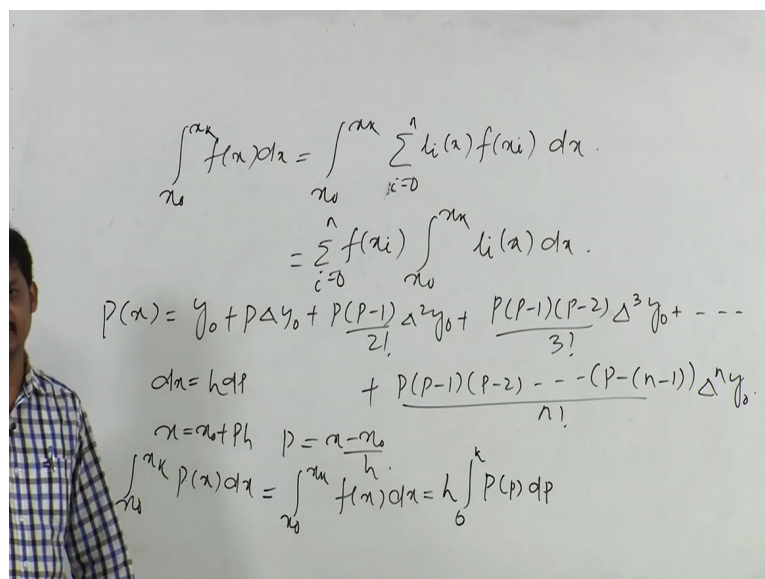 ∫_{x₀}^{xₖ} f(x)dx = ∫_{x₀}^{xₖ} Σ_{i=0}^{n} li(x) f(xi) dx.
= Σ_{i=0}^{n} f(xi) ∫_{x₀}^{xₖ} li(x) dx.
P(x) = y₀ + PΔy₀ + P(P-1)/2! Δ²y₀ + P(P-1)(P-2)/3! Δ³y₀ + - - -
dx = hdp + P(P-1)(P-2) - - - (P-(n-1))/n! Δⁿy₀.
x = x₀+Ph P = x-x₀/h.
∫_{x₀}^{xₖ} P(x)dx = ∫_{x₀}^{xₖ} f(x)dx = h∫_{0}^{k} P(p) dp